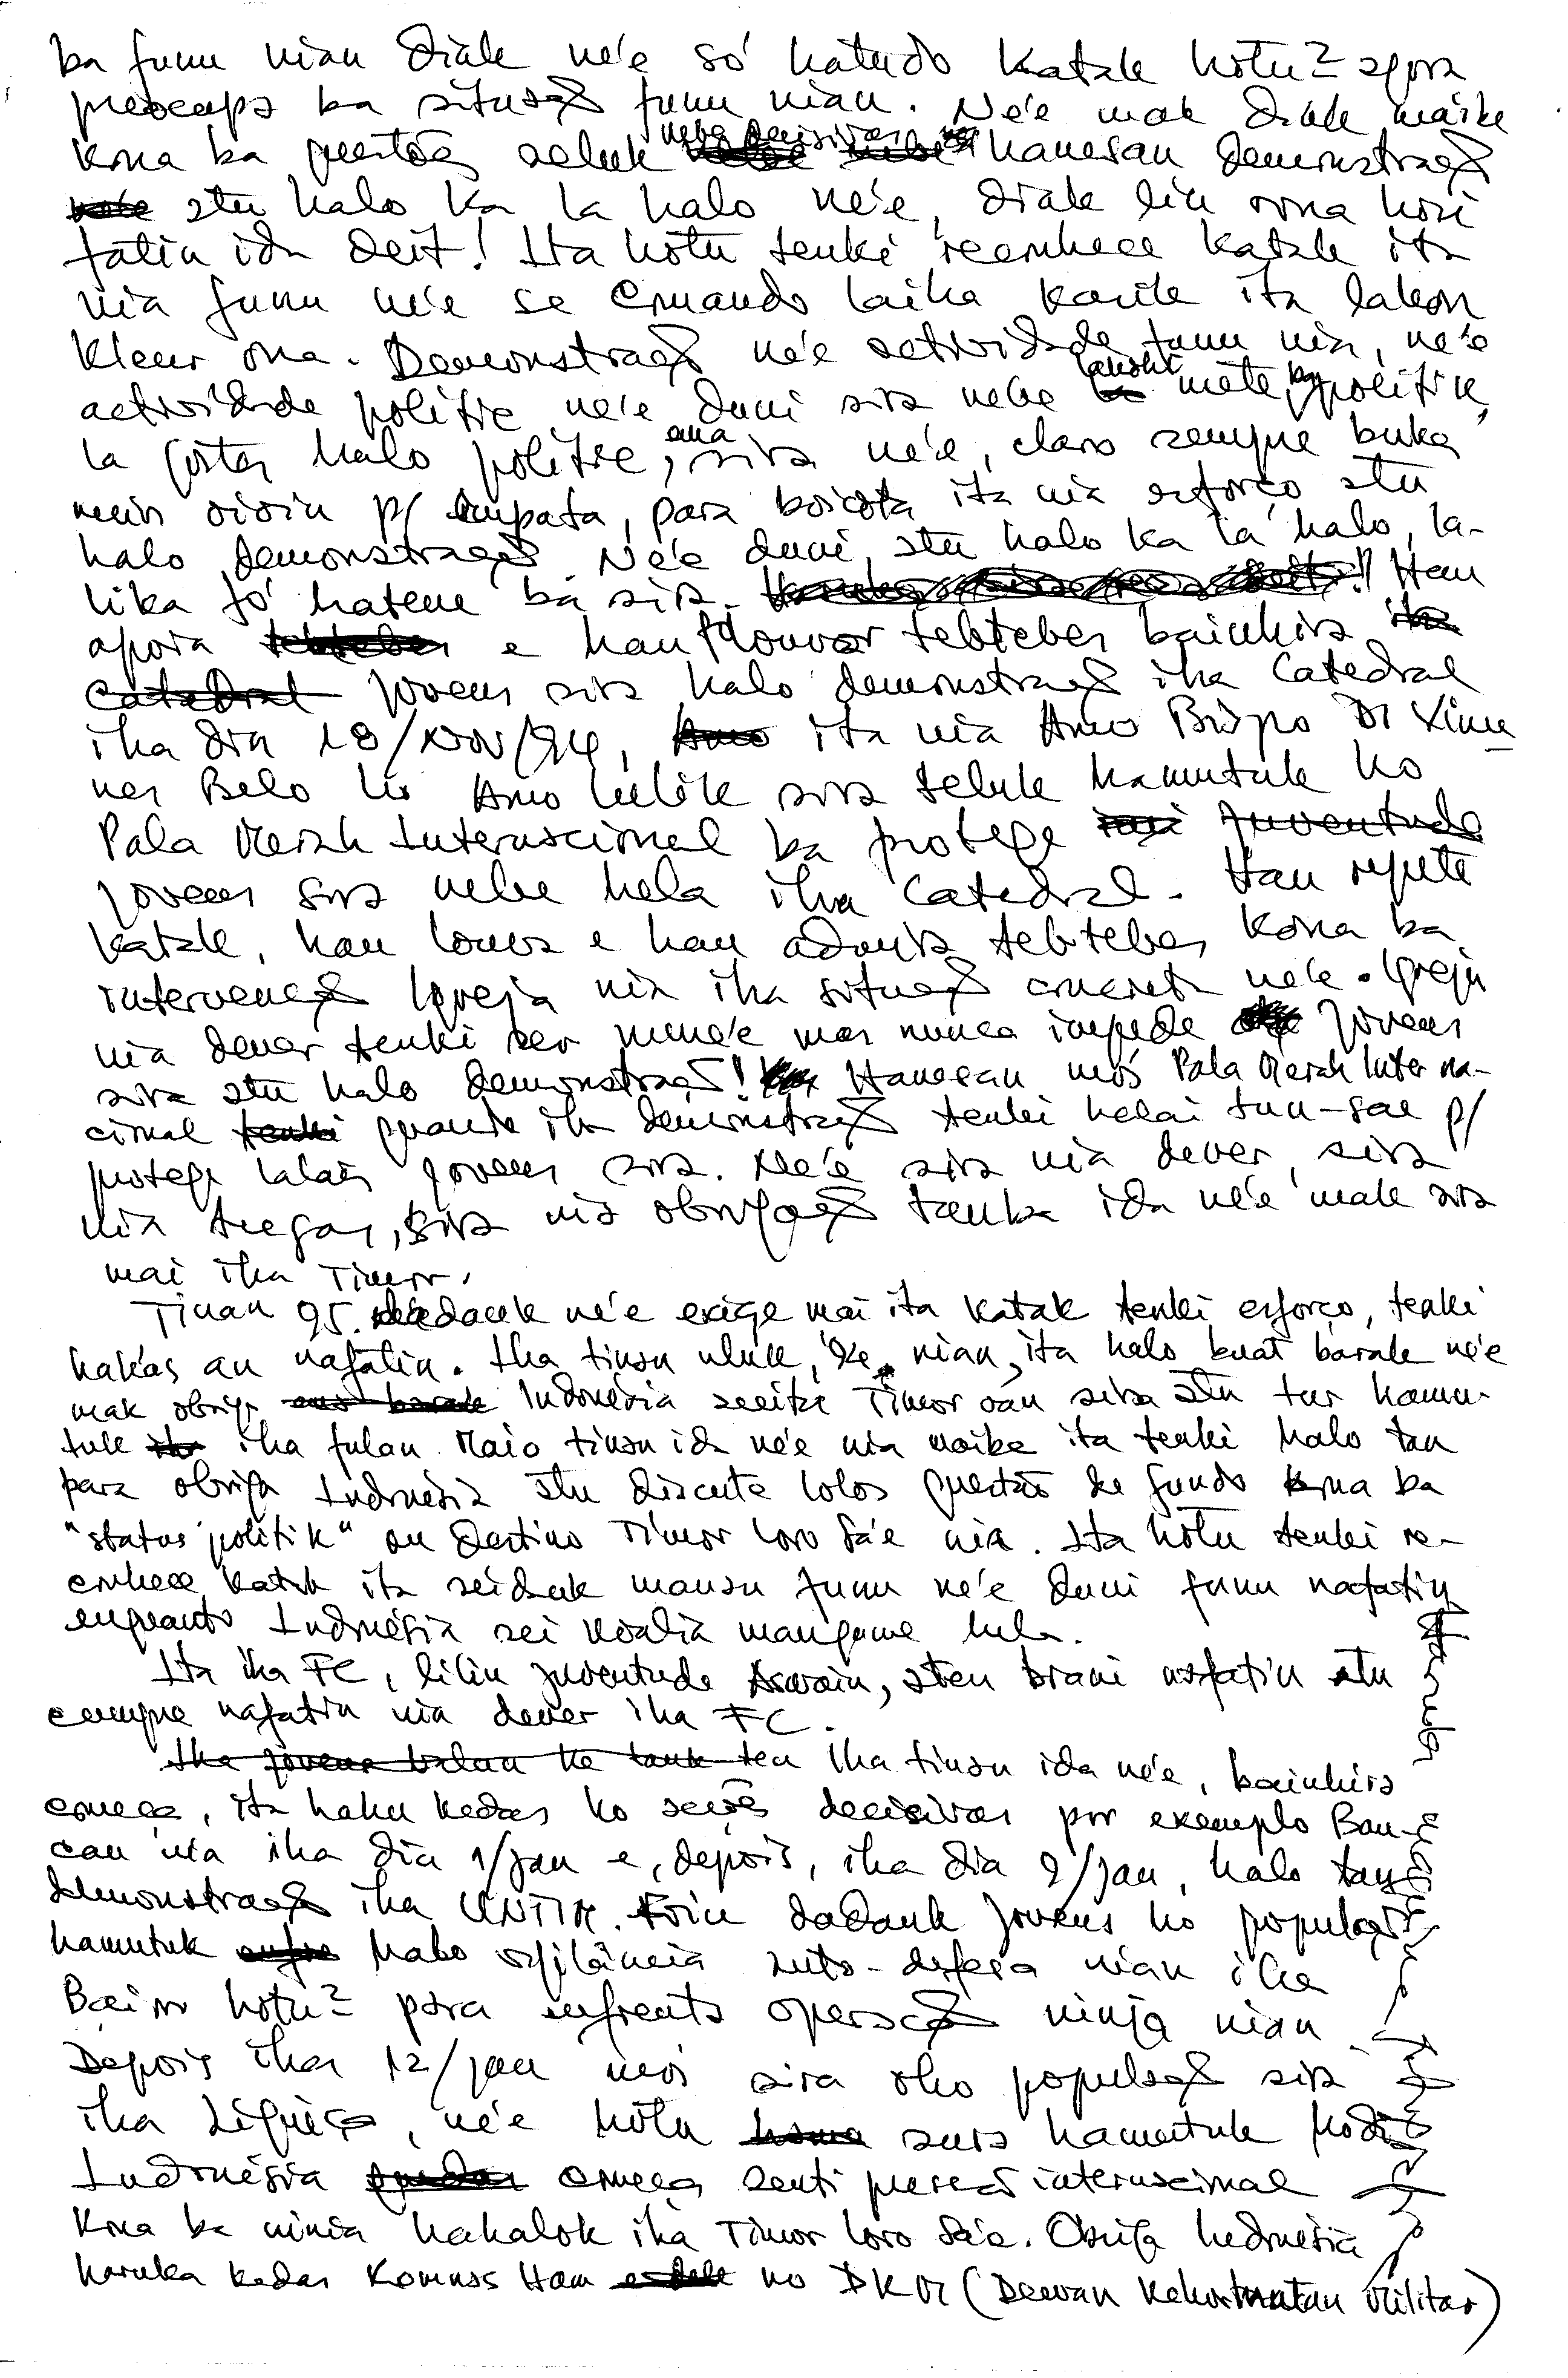 ba funu nian diak ne'e só hatudo katak hotu2 agora
preocupa ba situação funu nian. Ne'e mak diak maibe
kona ba questões seluk nebe decisivas hanesan demonstração
atu halo ka la halo ne'e, diak liu rona hosi
fatin ida deit! Ita hotu tenki reconhece katak ita
nia funu ne'e se comando laiha karik ita lakon
kleur ona. Demonstração ne'e actividade funu nia, ne'e
actividade politic ne'e duni sira nebe lakohi mete ba politik,
la gosta halo politic, ema sira ne'e, claro sempre buka
meios oioin p/ empata, para boicota ita nia esforço atu
halo demonstração. Ne'e duni, atu halo ka la halo, la-
lika fó hatene ba sira. Hau
apoia e hau louvar tebtebes bainhira
jovens sira halo demonstração iha Catedral
iha dia 18/Nov/94, ita nia Amo Bispo D. Xime-
nes Belo ho Amo lulik sira seluk hamutuk ho
Pala Merah Internacional ba protege
jovens sira nebe hela iha Catedral. Hau repete
katak, hau louva e hau admira tebtebes kona ba
intervenção Igreja nia iha situação concreta ne'e. Igreja
nia dever tenki ser nune'e mas nunca impede jovens
sira atu halo demonstração! Hanesan mós Pala Merah Interna-
cional quando iha demonstração tenki halai tun-sae p/
protege lalais jovens sira. Ne'e sira nia dever, sira
nia tregas, sira nia obrigação tanba ida ne'e mak sira
mai iha Timor.
Tinan 95 dadauk ne'e exige mai ita katak tenki esforço, tenki
hakas an nafatin. Iha tinan uluk, 94 nian, ita halo buat barak ne'e
mak obriga Indonésia seeita Timor oan sira atu tur hamu-
tuk iha fulan Maio tinan ida ne'e nia maibe ita tenki halo tan
para obriga Indonésia atu discute lolos questão de fundo kona ba
"status politik" ou destino Timor Loro Sa'e nia. Ita hotu tenki re-
conhece katak ita seidauk manan funu ne'e duni funu nafatin
enquanto Indonésia sei koalia mangame hela.
Ita iha FC, liliu juventude Aswain, aten brani nafatin atu
cumpre nafatin nia dever iha FC.
Iha tinan ida ne'e, bainhira
começa, ita hahu kedas ho acções decisivas por exemplo Bau-
cau nia iha dia 1/Jan e, depois, iha dia 9/Jan, halo tan
demonstração iha UNTIM. Foin dadauk jovens ho população
hamutuk halo vigilância auto-defesa nian iha
Bairo hotu2 para enfrenta operação ninja nian.
Depois iha 12/Jan mós sira oho população sira
iha Liquiça, ne'e hotu sura hamutuk hodi
Indonésia começa senti pressão internacional
kona ba ninia hahalok iha Timor Loro Sa'e. Obriga Indonésia
haruka kedas Komnas Ham no DKM (Dewan Kehormatan Militar)